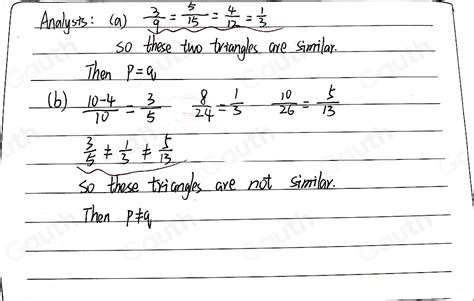 Analysis: (a) 3/9 = 5/15 = 4/12 = 1/3
so these two triangles are similar.
Then p=q
(b) (10-4)/10 = 3/5 8/24 = 1/3 10/26 = 5/13
3/5 ≠ 1/3 ≠ 5/13
so these triangles are not similar.
Then p≠q